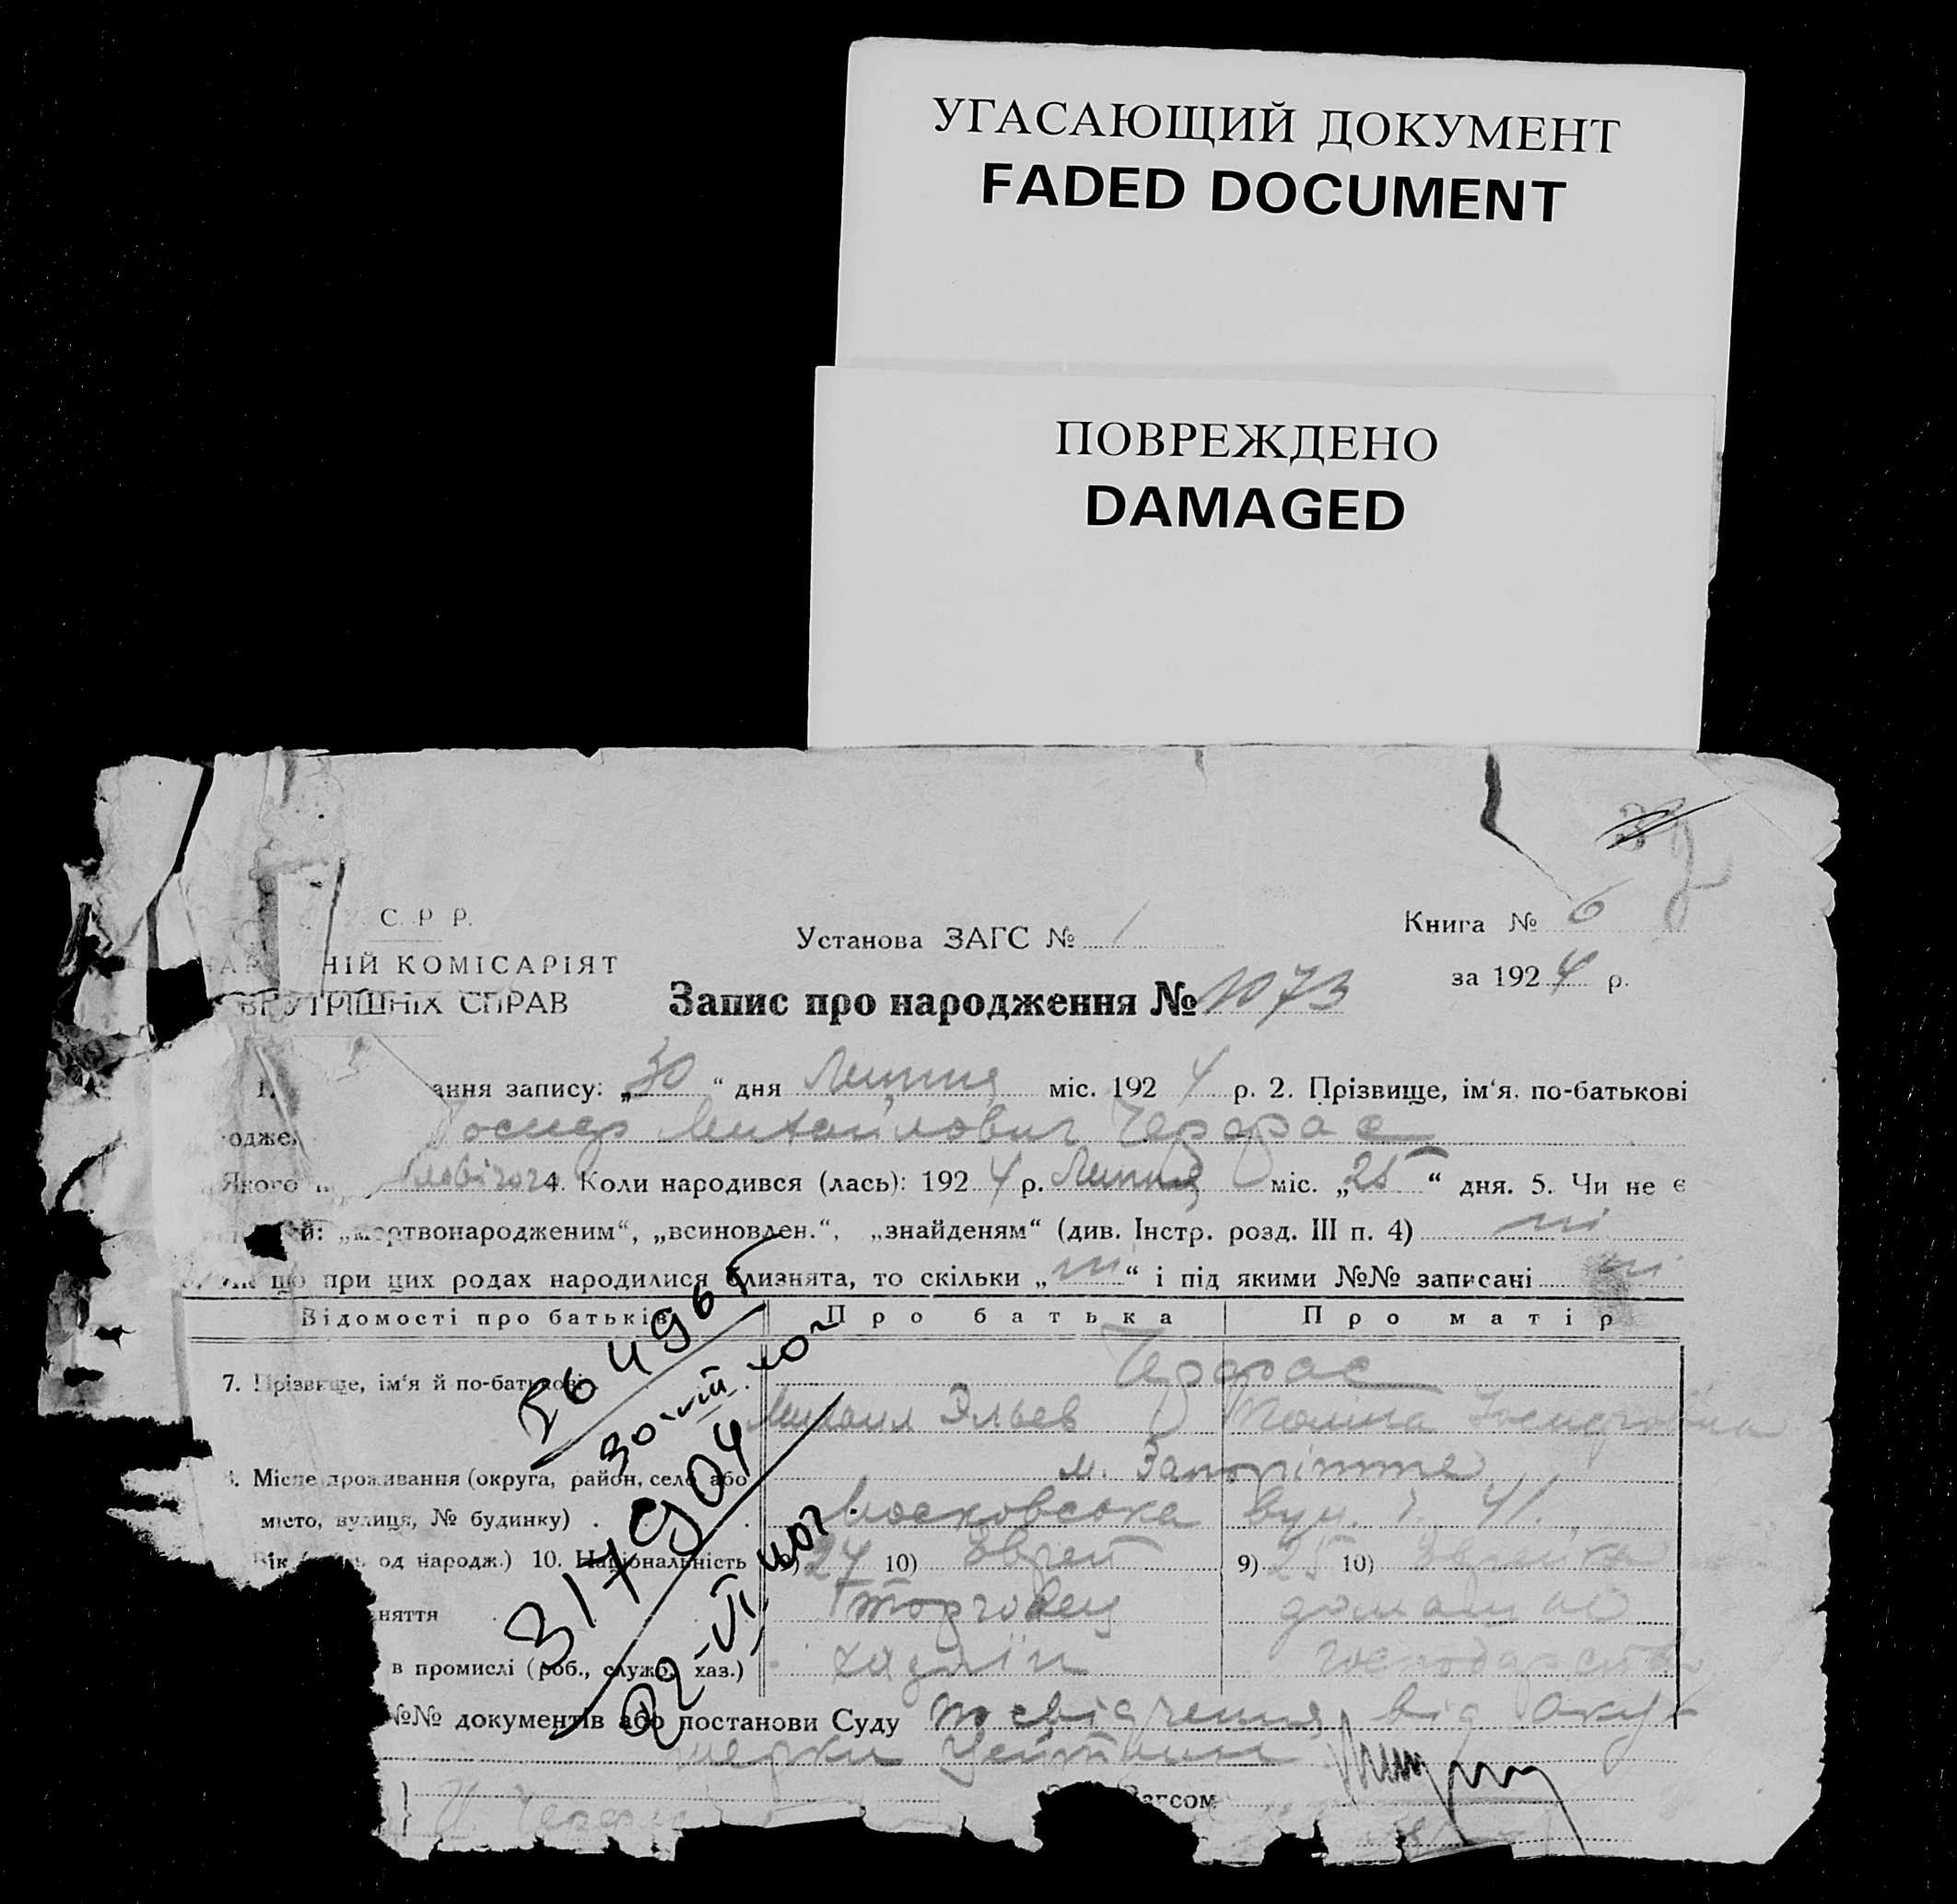 УГАСАЮЩИЙ ДОКУМЕНТ
FADED DOCUMENT
ПОВРЕЖДЕНО
DAMAGED
С. Р Р.
НІЙ КОМІСАРІЯТ
ВНУТРІШНІХ СПРАВ
Установа ЗАГС № 1
Книга № 6
за 1924 р.
Запис про народження № 1073
1. ання запису: „30“ дня Липня міс. 1924 р. 2. Прізвище, ім‘я, по-батькові
одже. Михайлович
Якого 4. Коли народився (лась): 1924 р. Липня міс. „25“ дня. 5. Чи не є
й: „мертвонародженим“, „всиновлен.“, „знайденям“ (див. Інстр. розд. III п. 4) ні
Як що при цих родах народилися близнята, то скільки „ні“ і під якими №№ записані ні
Відомості про батьків
Про батька
Про матір
7. Прізвище, ім‘я й по-батькові
Михаил Эльев
Місце проживання (округа, район, село або
м.
місто, вулиця, № будинку)
Московська вул. 41.
од народж.) 10. Національність
9) 24 10) Єврей
9) 25 10)
няття
торговец
домашнє
в промислі (роб., служб., хаз.)
хазяїн
господарство
№№ документів або постанови Суду посвідчення від аку-
шерки
Загсом
317904